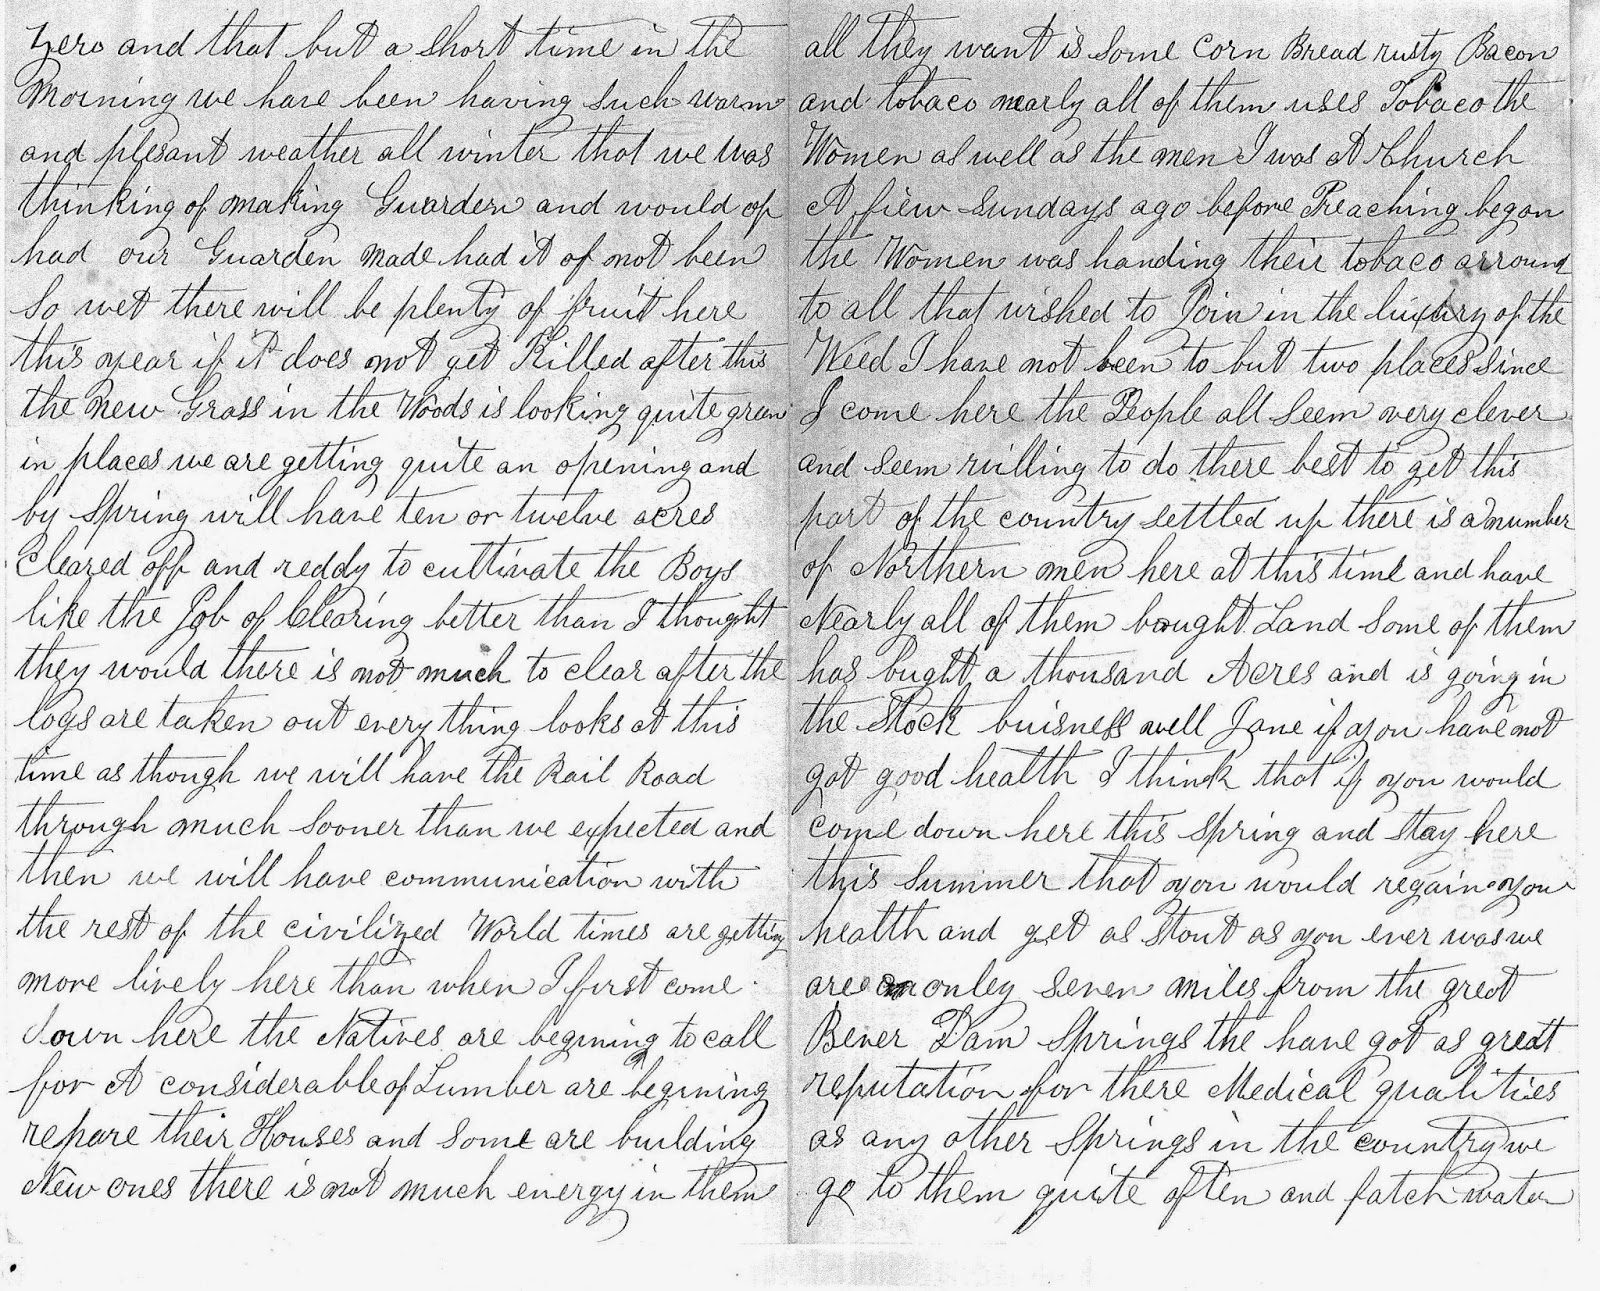 Zero and that but a short time in the
Morning we have been having such warm
and plesant weather all winter that we was
thinking of making Guarden and would of
had our Guarden made had it of not been
so wet there will be plenty of fruit here
this year if it does not get Killed after this
the new Grass in the Woods is looking quite green
in places we are getting quite an opening and
by Spring will have ten or twelve acres
cleared off and reddy to cultivate the Boys
like the Job of Clearing better than I thought
they would there is not much to clear after the
logs are taken out every thing looks at this
time as though we will have the Rail Road
through much sooner than we expected and
then we will have communication with
the rest of the civilized World times are getting
more lively here than when I first come
down here the Natives are begining to call
for A considerable of Lumber are begining
repare their Houses and some are building
New ones there is not much energy in them
all they want is some Corn Bread rusty Bacon
and tobaco nearly all of them uses Tobaco the
Women as well as the men I was At Church
A fiew Sundays ago before Preaching began
the Women was handing their tobaco arround
to all that wished to Join in the luxury of the
Weed I have not been to but two places since
I come here the People all seem very clever
and seem willing to do there best to get this
part of the country settled up there is a number
of Northern men here at this time and have
Nearly all of them bought Land some of them
has bught a thousand Acres and is going in
the Stock buisness well Jane if you have not
got good health I think that if you would
come down here this spring and stay here
this summer that you would regain you
health and get as stout as you ever was we
are onley seven miles from the great
Bever Dam Springs the have got as great
reputation for there Medical qualities
as any other Springs in the country we
go to them quite often and fatch water